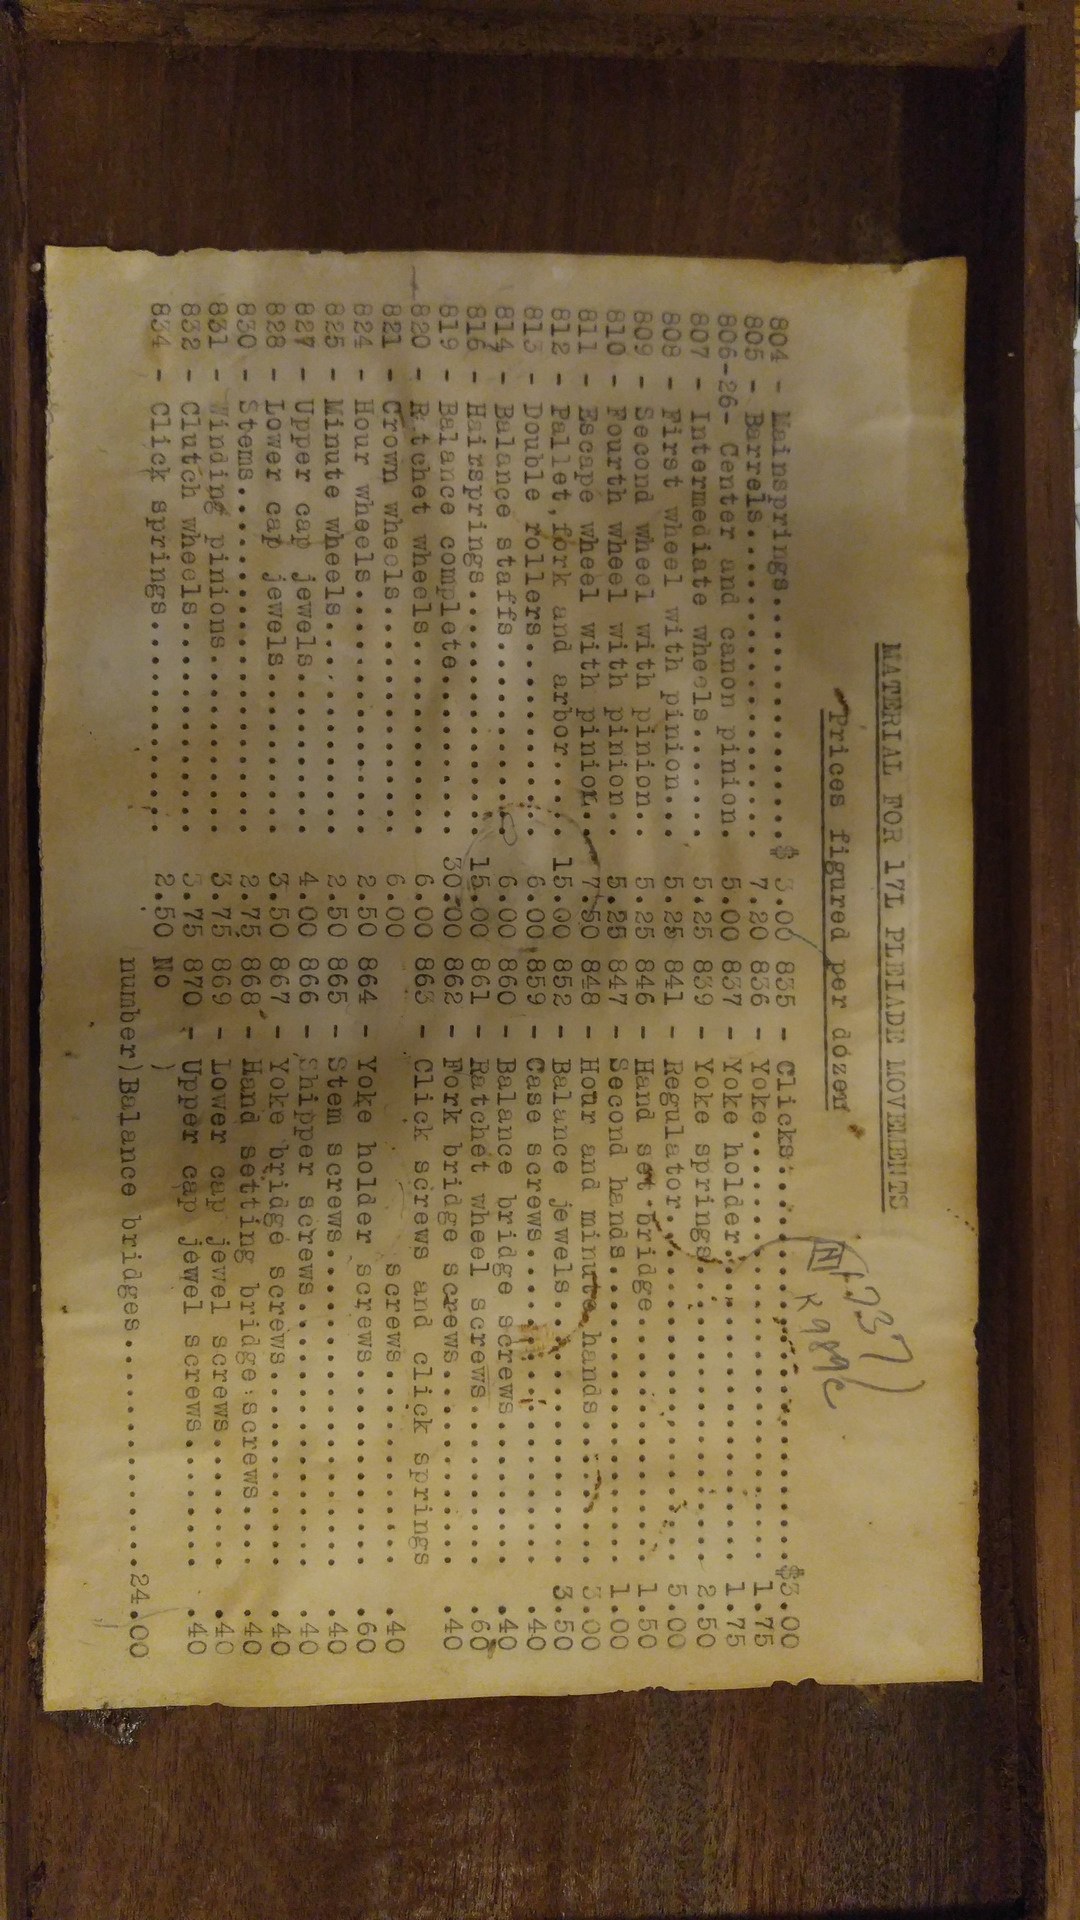 MATERIAL FOR 17L PLEIADE MOVEMENTS
Prices figured per dozen
N
804 - Mainsprings....................$ 3.00 835 - Clicks............................$3.00
805 - Barrels...................... 7.20 836 - Yoke............................ 1.75
806-26- Center and canon pinion. 5.00 837 - Yoke holder..................... 1.75
807 - Intermediate wheels....... 5.25 839 - Yoke springs.................... 2.50
808 - First wheel with pinion... 5.25 841 - Regulator....................... 5.00
809 - Second wheel with pinion.. 5.25 846 - Hand set bridge................. 1.50
810 - Fourth wheel with pinion.. 5.25 847 - Second hands.................... 1.00
811 - Escape wheel with pinion.. 7.50 848 - Hour and minute hands.......... 3.00
812 - Pallet,fork and arbor.... 15.00 852 - Balance jewels.................. 3.50
813 - Double rollers............ 6.00 859 - Case screws..................... .40
814 - Balance staffs............ 6.00 860 - Balance bridge screws.......... .40
816 - Hairsprings............... 15.00 861 - Ratchet wheel screws........... .60
819 - Balance complete.......... 30.00 862 - Fork bridge screws............. .40
820 - Ratchet wheels............ 6.00 863 - Click screws and click springs
821 - Crown wheels.............. 6.00 screws................ .40
824 - Hour wheels............... 2.50 864 - Yoke holder screws............. .60
825 - Minute wheels............. 2.50 865 - Stem screws..................... .40
827 - Upper cap jewels.......... 4.00 866 - Shipper screws.................. .40
828 - Lower cap jewels.......... 3.50 867 - Yoke bridge screws............. .40
830 - Stems..................... 2.75 868 - Hand setting bridge screws.... .40
831 - Winding pinions........... 3.75 869 - Lower cap jewel screws........ .40
832 - Clutch wheels............. 3.75 870 - Upper cap jewel screws........ .40
834 - Click springs............. 2.50 No )
number)Balance bridges.................24.00